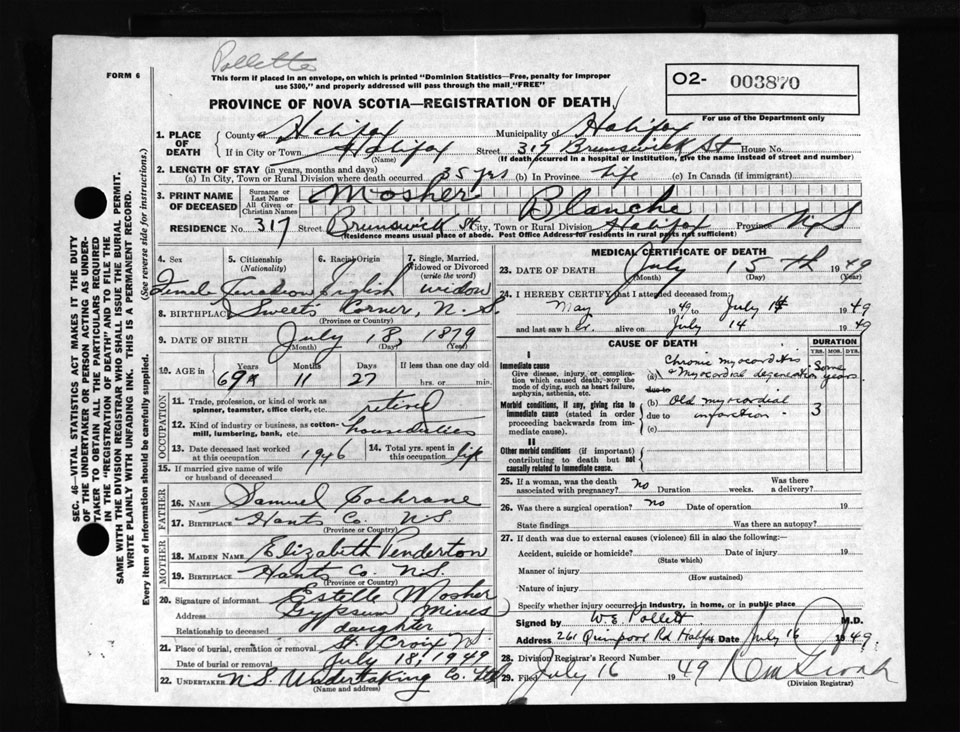 FORM 6
Pollette
This form if placed in an envelope, on which is printed "Dominion Statistics—Free, penalty for improper
use $300," and properly addressed will pass through the mail "FREE"
02- 003870
PROVINCE OF NOVA SCOTIA—REGISTRATION OF DEATH
For use of the Department only
1. PLACE OF DEATH County Halifax Municipality of Halifax
If in City or Town Halifax (Name) Street 317 Brunswick St House No.
(If death occurred in a hospital or institution, give the name instead of street and number)
2. LENGTH OF STAY (in years, months and days)
(a) In City, Town or Rural Division where death occurred 35 yrs (b) In Province life (c) In Canada (if immigrant)
3. PRINT NAME OF DECEASED Surname or Last Name Mosher
All Given or Christian Names Blanche
RESIDENCE No. 317 Street Brunswick St City, Town or Rural Division Halifax Province N.S
(Residence means usual place of abode. Post Office Address for residents in rural parts not sufficient)
4. Sex 5. Citizenship (Nationality) 6. Racial Origin 7. Single, Married, Widowed or Divorced (write the word)
Female Canadian English widow
8. BIRTHPLACE Sweets Corner, N.S.
(Province or Country)
9. DATE OF BIRTH July 18, 1879
(Month) (Day) (Year)
10. AGE in Years Months Days If less than one day old
69 11 27 hrs. or min.
OCCUPATION
11. Trade, profession, or kind of work as spinner, teamster, office clerk, etc. retired
12. Kind of industry or business, as cotton-mill, lumbering, bank, etc. house duties
13. Date deceased last worked at this occupation 1946 14. Total yrs. spent in this occupation life
15. If married give name of wife or husband of deceased
FATHER
16. NAME Samuel Cochrane
17. BIRTHPLACE Hants Co. N.S.
(Province or Country)
MOTHER
18. MAIDEN NAME Elizabeth Penderton
19. BIRTHPLACE Hants Co. N.S.
(Province or Country)
20. Signature of informant Estelle Mosher
Address Gypsum Mines
Relationship to deceased daughter
21. Place of burial, cremation or removal St Croix N.S.
Date of burial or removal July 18, 1949
22. UNDERTAKER N.S. Undertaking Co. Ltd
(Name and address)
MEDICAL CERTIFICATE OF DEATH
23. DATE OF DEATH July 15th 1949
(Month) (Day) (Year)
24. I HEREBY CERTIFY that I attended deceased from
May 1949 to July 14 1949
and last saw her alive on July 14 1949
CAUSE OF DEATH DURATION
YRS. MOS. DYS.
I
Immediate cause
Give disease, injury, or complication which caused death, not the mode of dying, such as heart failure, asphyxia, asthenia, etc.
(a) Chronic myocarditis & Myocardial degeneration Some years.
due to
Morbid conditions, if any, giving rise to immediate cause (stated in order proceeding backwards from immediate cause).
(b) Old myocardial infarction 3
due to
(c)
II
Other morbid conditions (if important) contributing to death but not causally related to immediate cause.
25. If a woman, was the death associated with pregnancy? no Duration weeks. Was there a delivery?
26. Was there a surgical operation? no Date of operation 19
State findings Was there an autopsy?
27. If death was due to external causes (violence) fill in also the following:
Accident, suicide or homicide? Date of injury 19
(State which)
Manner of injury
(How sustained)
Nature of injury
Specify whether injury occurred in industry, in home, or in public place
Signed by W E Pollett M.D.
Address 261 Quinpool Rd Halifax Date July 16 1949
28. Division Registrar's Record Number
29. Filed July 16 1949
(Division Registrar)
SEC. 46—VITAL STATISTICS ACT MAKES IT THE DUTY
OF THE UNDERTAKER OR PERSON ACTING AS UNDER-
TAKER TO OBTAIN ALL THE PARTICULARS REQUIRED
IN THE "REGISTRATION OF DEATH" AND TO FILE THE
SAME WITH THE DIVISION REGISTRAR WHO SHALL ISSUE THE BURIAL PERMIT.
WRITE PLAINLY WITH UNFADING INK. THIS IS A PERMANENT RECORD.
Every item of information should be carefully supplied. (See reverse side for instructions.)